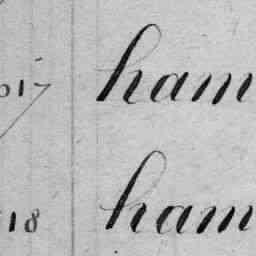 617 ham
18 ham